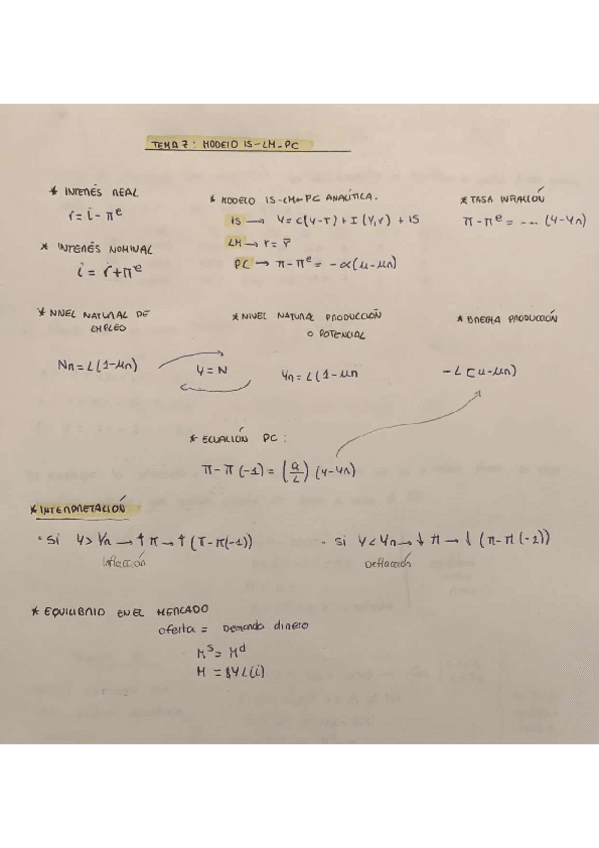 TEMA 7: MODELO IS-LM-PC
* INTERÉS REAL
r = i - π^e
* INTERÉS NOMINAL
i = r + π^e
* MODELO IS-LM-PC ANALÍTICA.
IS → Y = C(Y-T) + I(Y,r) + IS
LM → r = r̅
PC → π - π^e = -α(u-un)
* TASA INFLACIÓN
π - π^e = -... (Y-Yn)
* NIVEL NATURAL DE
EMPLEO
Nn = L(1-un)
Y = N
* NIVEL NATURAL PRODUCCIÓN
O POTENCIAL
Yn = L(1-un
* BRECHA PRODUCCIÓN
-L [u-un)
* ECUACIÓN PC:
π - π(-1) = (a/L) (Y-Yn)
* INTERPRETACIÓN
· SI Y > Yn → ↑ π → ↑ (π-π(-1))
Inflacción
· SI Y < Yn → ↓ π → ↓ (π-π(-1))
Deflacción
* EQUILIBRIO EN EL MERCADO
oferta = Demanda dinero
M^s = M^d
M = $YL(i)